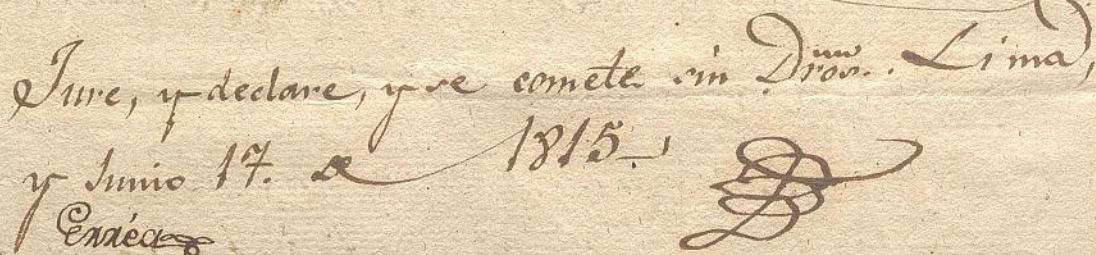 Jure, y declare, y se comete sin Dros. Lima,
y Junio 17. de 1815
Erréa